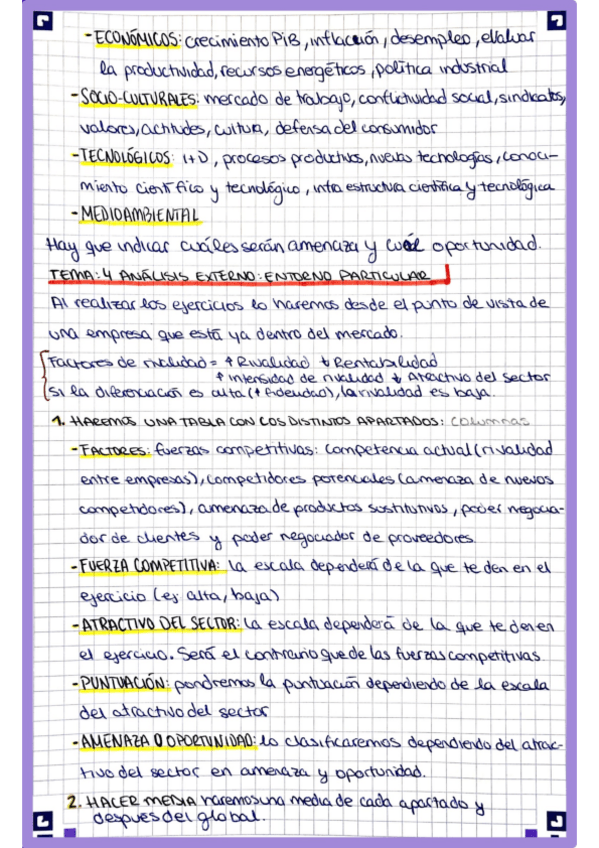 -ECONÓMICOS: crecimiento PiB, inflación, desempleo, evaluar
la productividad, recursos energéticos, política industrial
-SOCIO-CULTURALES: mercado de trabajo, conflictividad social, sindicatos,
valores, actitudes, cultura, defensa del consumidor
-TECNOLÓGICOS: I+D, procesos productivos, nuevas tecnologías, conoci-
miento científico y tecnológico, infraestructura científica y tecnológica
-MEDIOAMBIENTAL
Hay que indicar cuáles serán amenaza y cuál oportunidad.
TEMA: 4 ANÁLISIS EXTERNO: ENTORNO PARTICULAR
Al realizar los ejercicios lo haremos desde el punto de vista de
una empresa que está ya dentro del mercado.
Factores de rivalidad = ↑ Rivalidad ↓ Rentabilidad
↑ intensidad de rivalidad ↓ Atractivo del sector
Si la diferenciación es alta (↑ fidelidad), la rivalidad es baja.
1. HAREMOS UNA TABLA CON LOS DISTINTOS APARTADOS: columnas
-FACTORES: fuerzas competitivas: competencia actual (rivalidad
entre empresas), competidores potenciales (amenaza de nuevos
competidores), amenaza de productos sustitutivos, poder negocia-
dor de clientes y poder negociador de proveedores.
-FUERZA COMPETITIVA: la escala dependerá de la que te den en el
ejercicio (ej alta, baja)
-ATRACTIVO DEL SECTOR: la escala dependerá de la que te den en
el ejercicio. Será el contrario que de las fuerzas competitivas.
-PUNTUACIÓN: pondremos la puntuación dependiendo de la escala
del atractivo del sector
-AMENAZA O OPORTUNIDAD: lo clasificaremos dependiendo del atrac-
tivo del sector en amenaza y oportunidad.
2. HACER MEDIA haremos una media de cada apartado y
después del global.